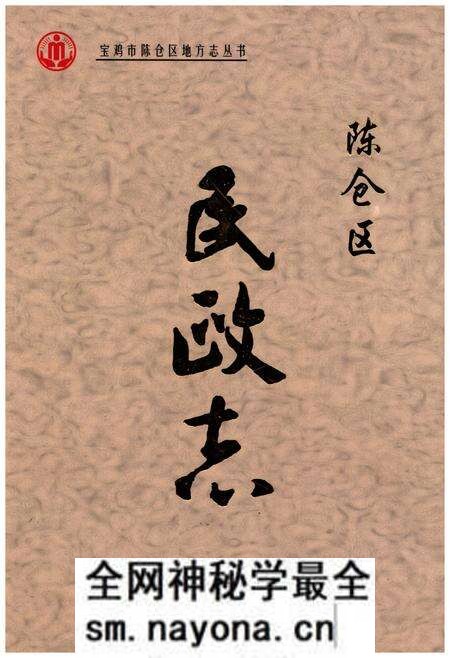 宝鸡市陈仓区地方志丛书
陈仓区
民政志
全网神秘学最全
sm.nayona.cn